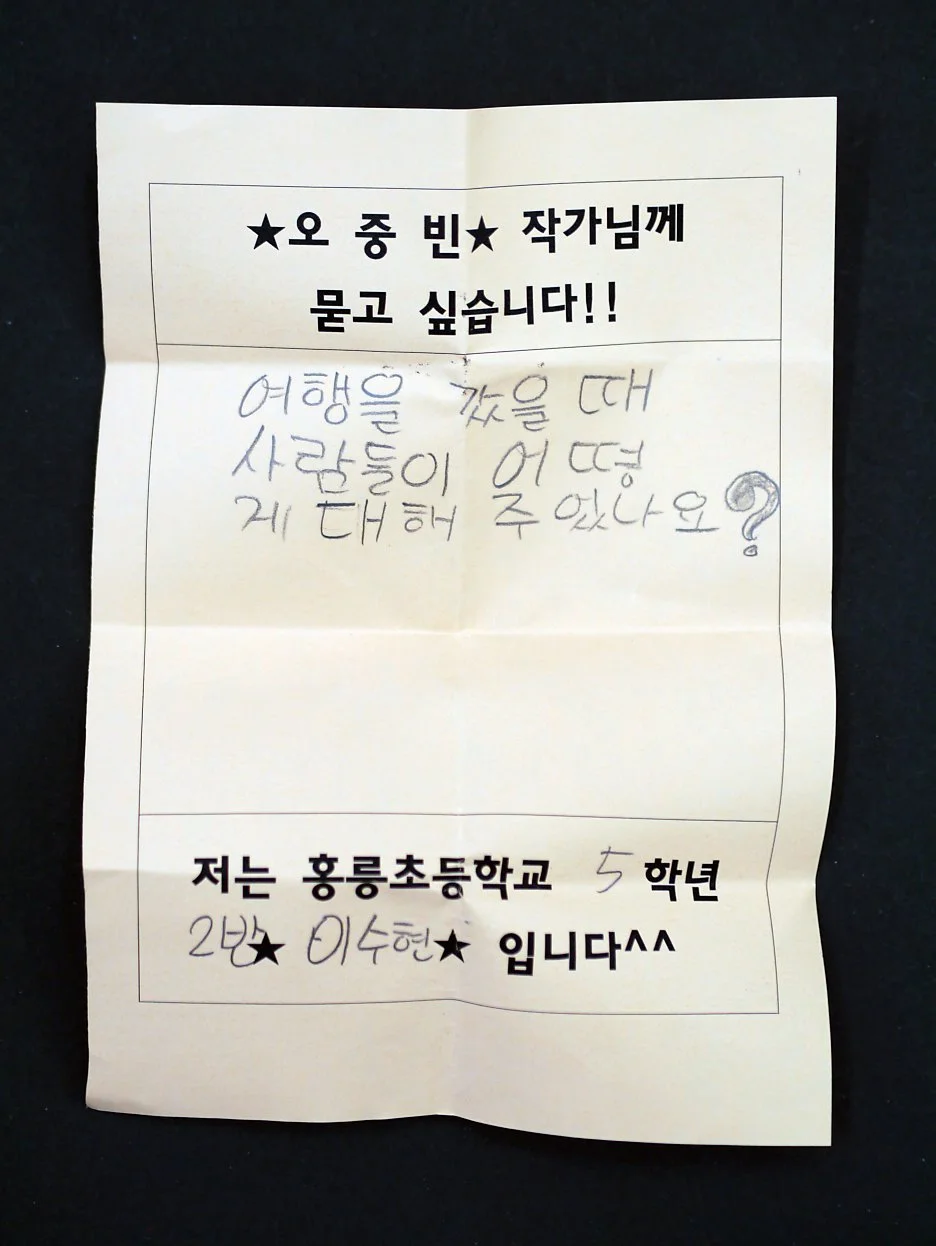 ★오 중 빈★ 작가님께
묻고 싶습니다!!
여행을 갔을 때
사람들이 어떻
게 대해 주었나요?
저는 홍릉초등학교 5 학년
2반★ 이수현★ 입니다^^